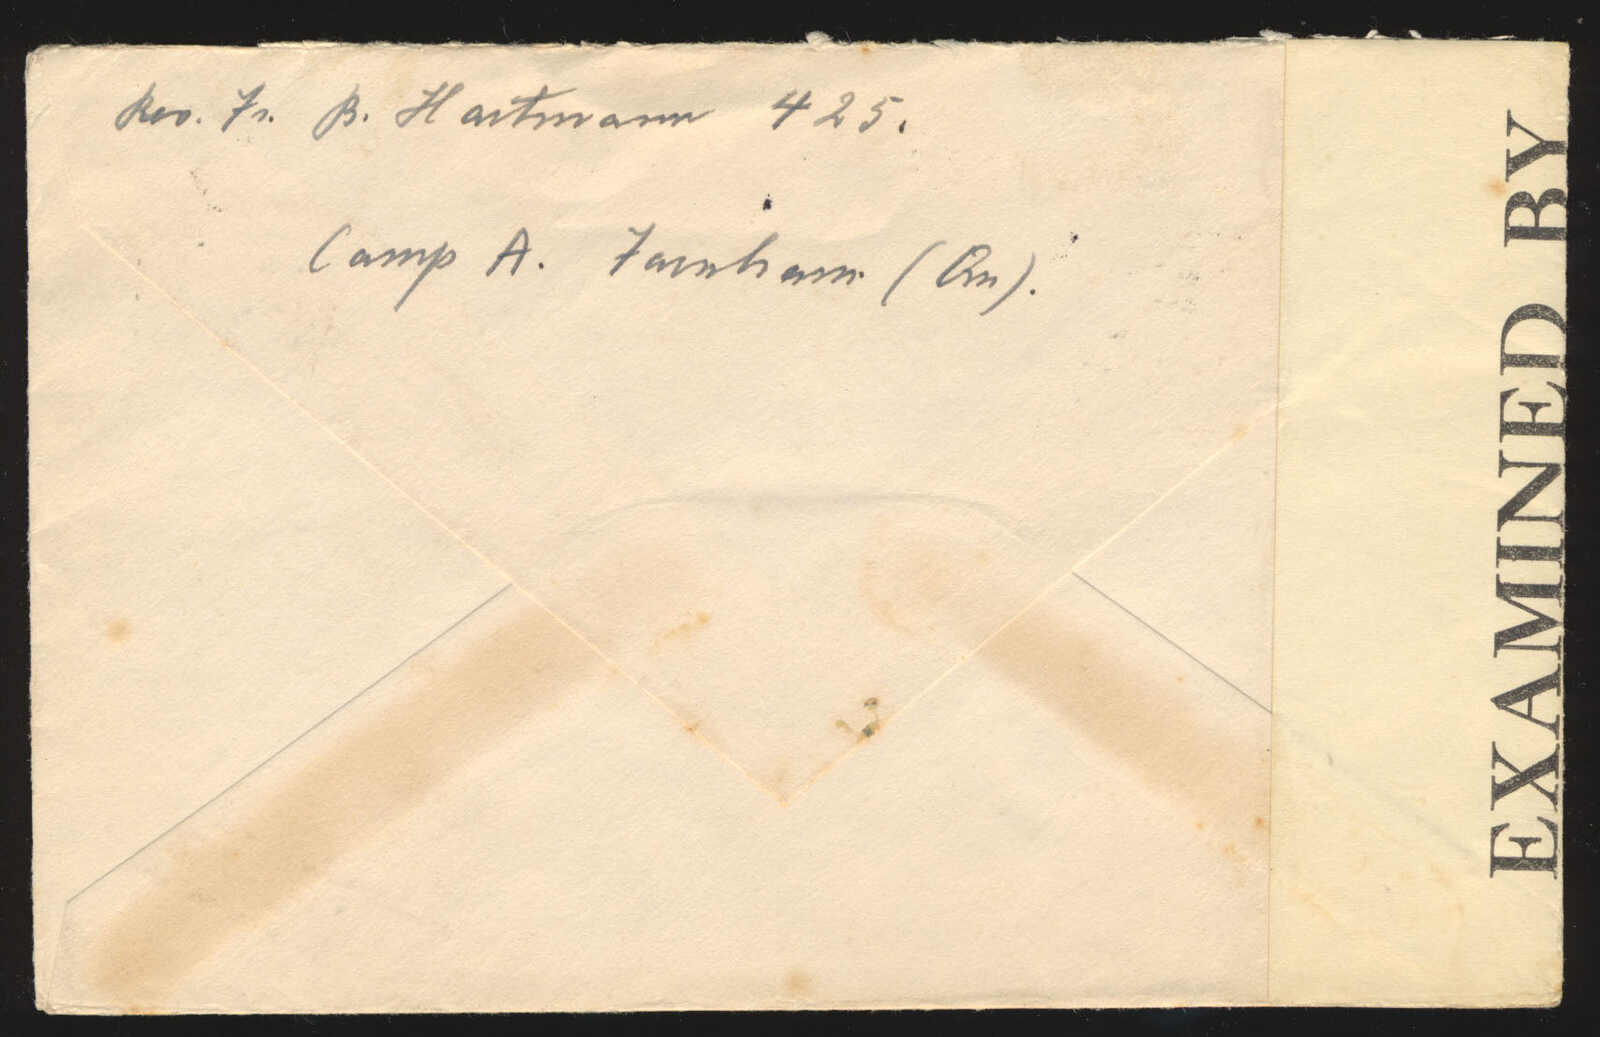 Rev. Fr. B. Hartmann 425.
Camp A. Farnham (Qu).
EXAMINED BY